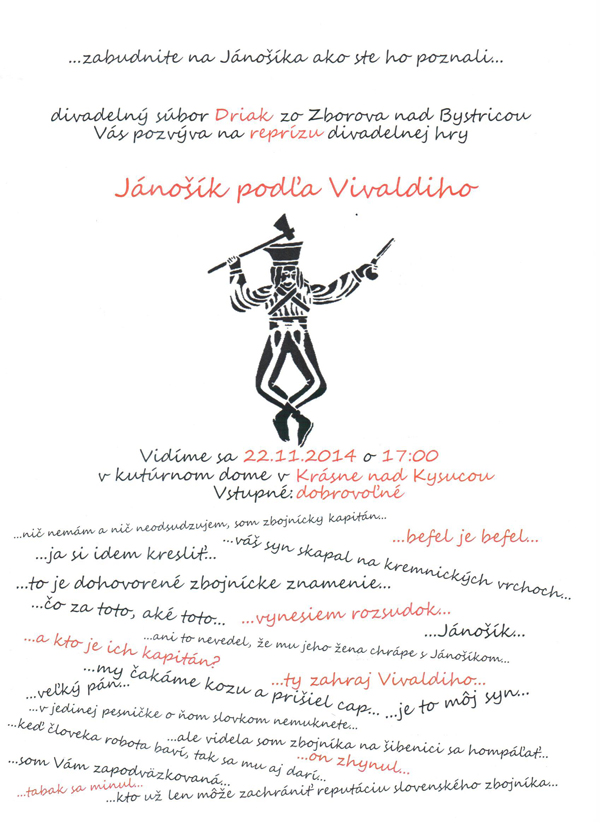 ...zabudnite na Jánošíka ako ste ho poznali...
divadelný súbor Driak zo Zborova nad Bystricou
Vás pozvýva na reprízu divadelnej hry
Jánošík podľa Vivaldiho
Vidíme sa 22.11.2014 o 17:00
v kutúrnom dome v Krásne nad Kysucou
Vstupné: dobrovoľné
...nič nemám a nič neodsudzujem, som zbojnícky kapitán...
...befel je befel...
...ja si idem kresliť...
...váš syn skapal na kremnických vrchoch...
...to je dohovorené zbojnícke znamenie...
...čo za toto, aké toto...
...vynesiem rozsudok...
...Jánošík...
...a kto je ich kapitán?
...ani to nevedel, že mu jeho žena chrápe s Jánošíkom...
...my čakáme kozu a prišiel cap...
...ty zahraj Vivaldiho...
...veľký pán...
...je to môj syn...
...v jedinej pesničke o ňom slovkom nemuknete...
...ale videla som zbojníka na šibenici sa hompáľať...
...keď človeka robota baví, tak sa mu aj darí...
...on zhynul...
...som Vám zapodväzkovaná...
...tabak sa minul...
...kto už len môže zachrániť reputáciu slovenského zbojníka...